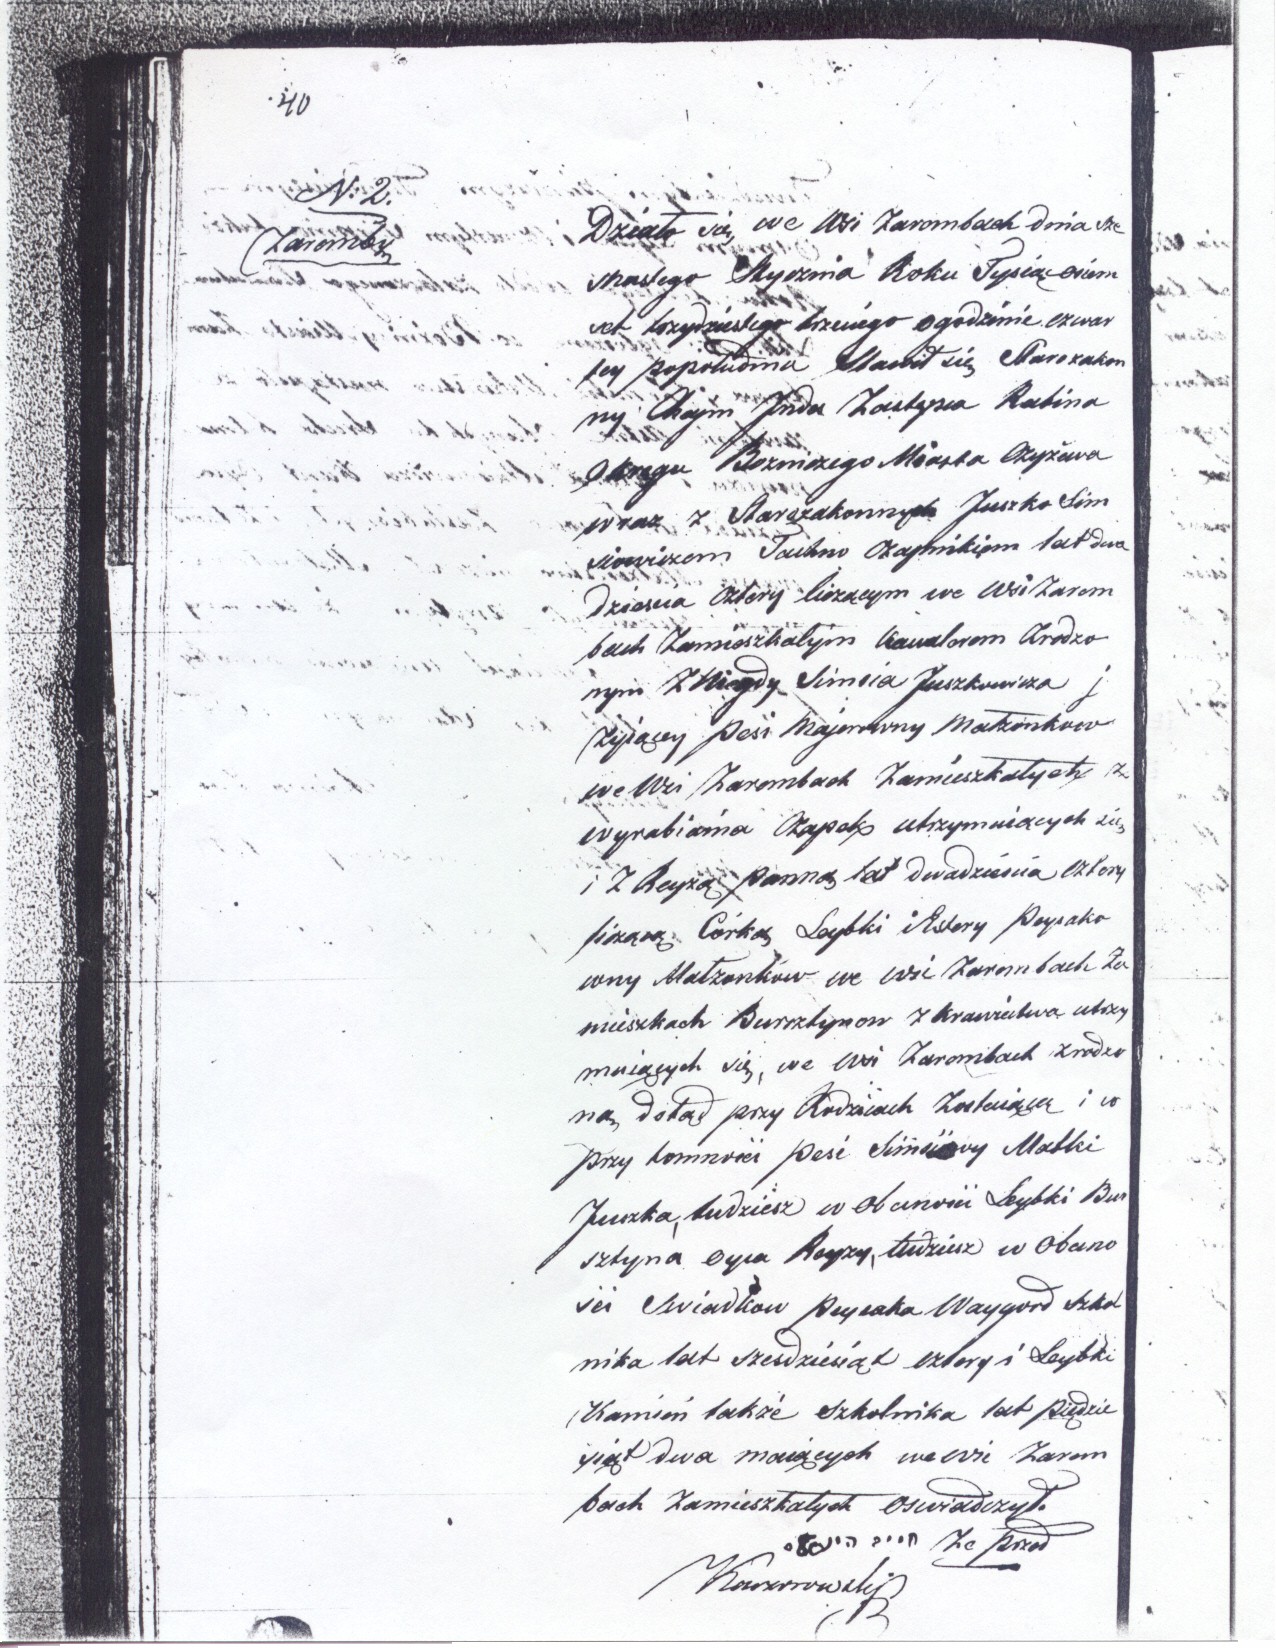 40
N. 2.
Zaromby
Działo się we Wsi Zarombach dnia sze
snastego Stycznia Roku Tysiąc osiem
set trzydziestego trzeciego o godzinie czwar
tey popołudniu Stawił się Starozakon
ny Chaim Juda Zastępca Rabina
Okręgu Bożniczego Miasta Czyżewa
wraz z Starozakonnych Juszko Sim
siowiczem Czapnikiem lat dwa
dziescia cztery liczącym we Wsi Zarom
bach Zamieszkałym kawalerem Zrodzo
nym z Niegdy Simsia Juszkowicza j
żyiącey Pesi Majerowny Małżonkow
we Wsi Zarombach Zamieszkałych z
wyrabiania Czapek utrzymuiących się
i Z Reyzą panną lat dwadzieścia cztery
liczącą Córką Leybki i Estery Peysako
wny Małżonków we wsi Zarombach Za
mieszkach Bursztynow z krawiectwa utrzy
muiących się, we Wsi Zarombach zrodzo
ną dotąd przy Rodzicach Zostaiącą i w
przytomności Pesi Matki
Juszka, tudziesz w Obecności Leybki Bur
sztyna oyca Reyzy, tudziesz w Obecno
ści Swiadkow Peysaka Waygord Szkol
nika lat szesdziesiąt cztery i Leybki
Kamień także Szkolnika lat piędzie
siąt dwa maiących we wsi Zarom
bach Zamieszkałych oswiadczył.
Ze przed
חיים
Kaczorowski